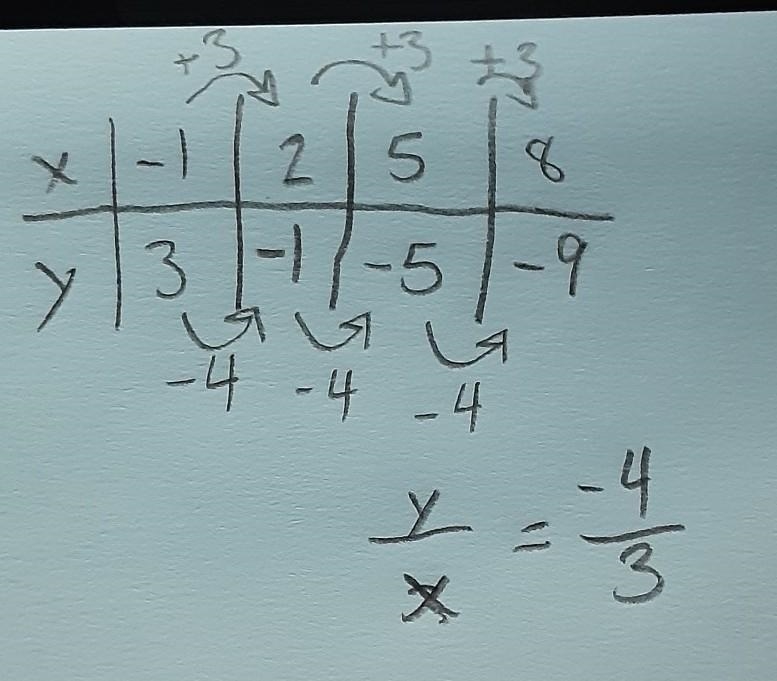 +3 +3 +3
x -1 2 5 8
y 3 -1 -5 -9
-4 -4 -4
y/x = -4/3